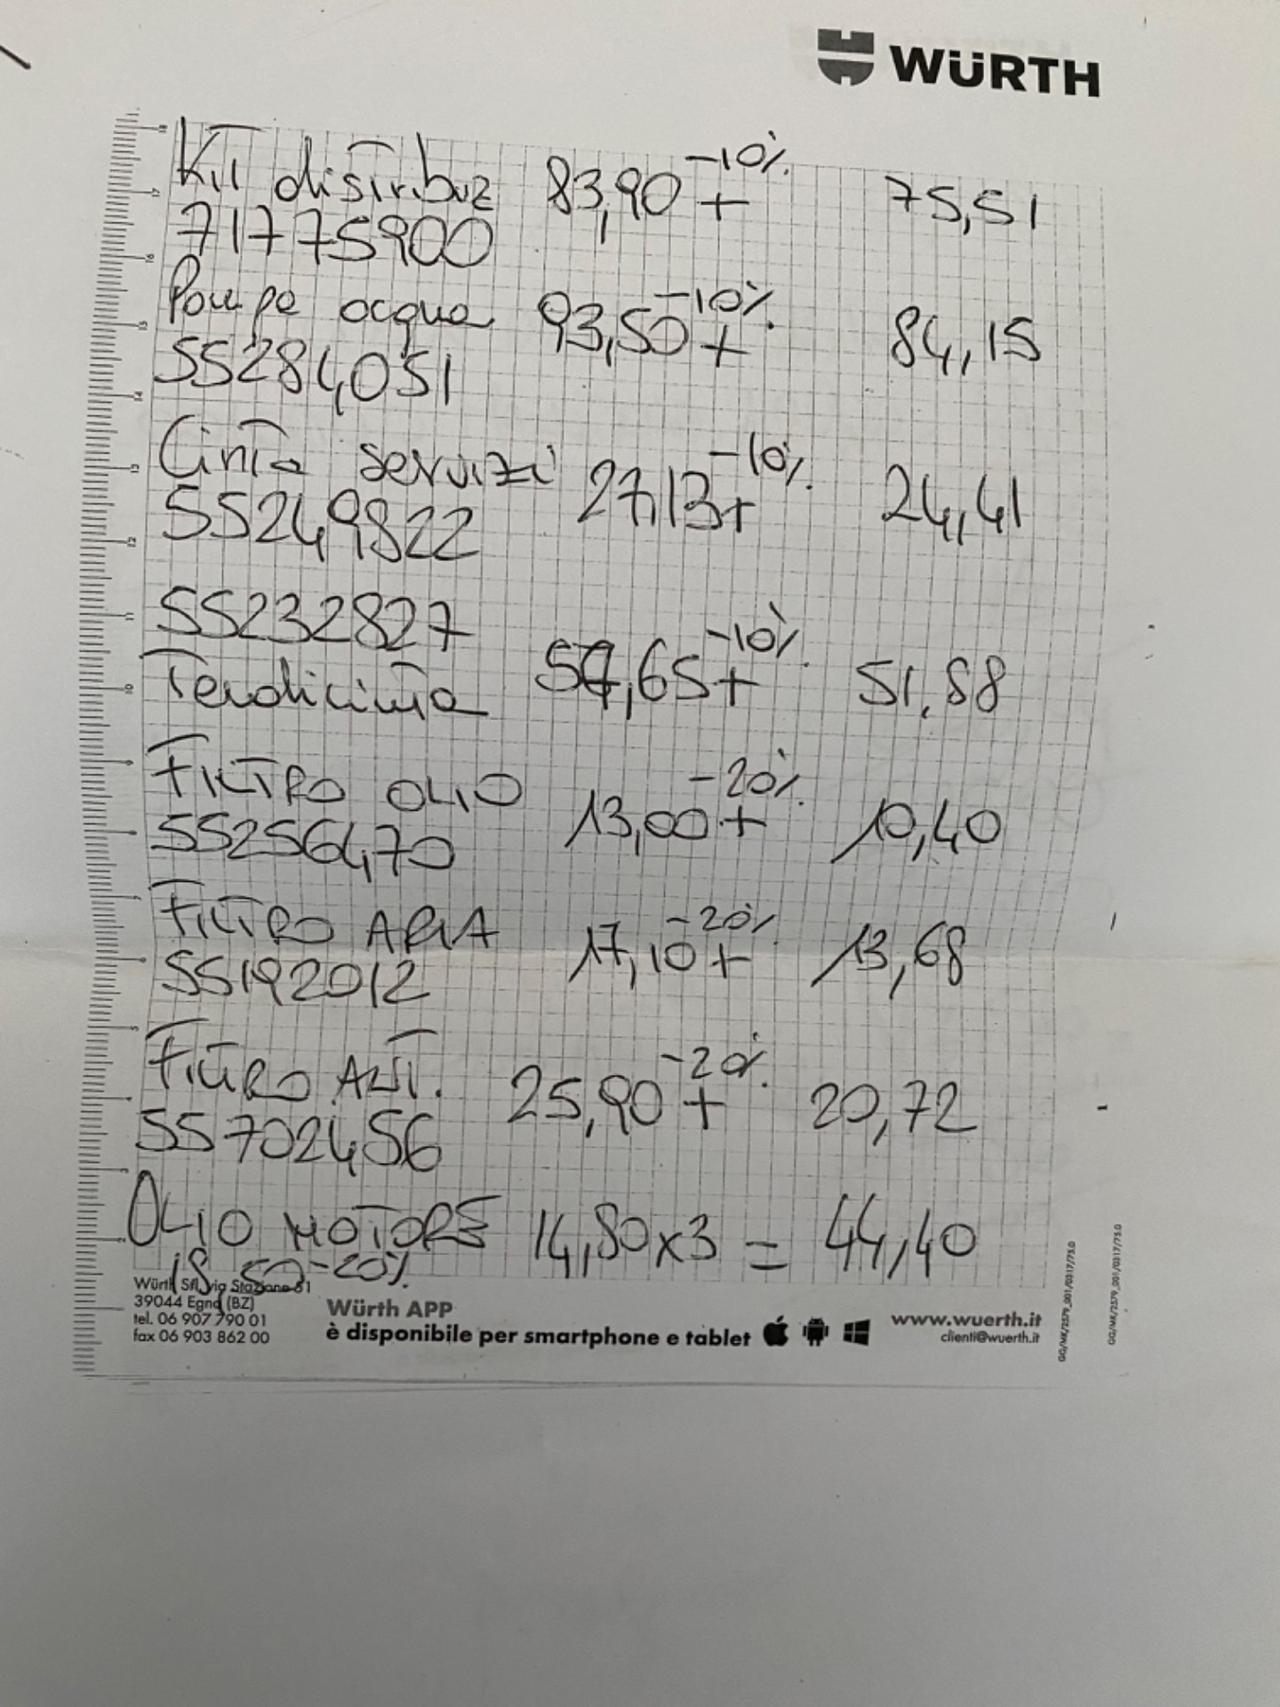 WÜRTH
Kit distribuz 83,90 -10% + 75,51
71775900
Pompa acqua 93,50 -10% + 84,15
55284051
Cinta servizi 27,13 -10% + 24,41
55249822
55232827
Tendicinta 57,65 -10% + 51,88
FILTRO OLIO 13,00 -20% + 10,40
55256470
FILTRO ARIA 17,10 -20% + 13,68
55192012
FILTRO ANT. 25,90 -20% + 20,72
55702456
OLIO MOTORE 14,80 x 3 = 44,40
18,50 -20%
Würth Srl, via Stazione 51
39044 Egna (BZ)
tel. 06 907 790 01
fax 06 903 862 00
Würth APP
è disponibile per smartphone e tablet
www.wuerth.it
clienti@wuerth.it
GG/MK/2579_001/0317/75.0
GG/MK/2579_001/0317/75.0
18
17
16
15
14
13
12
11
10